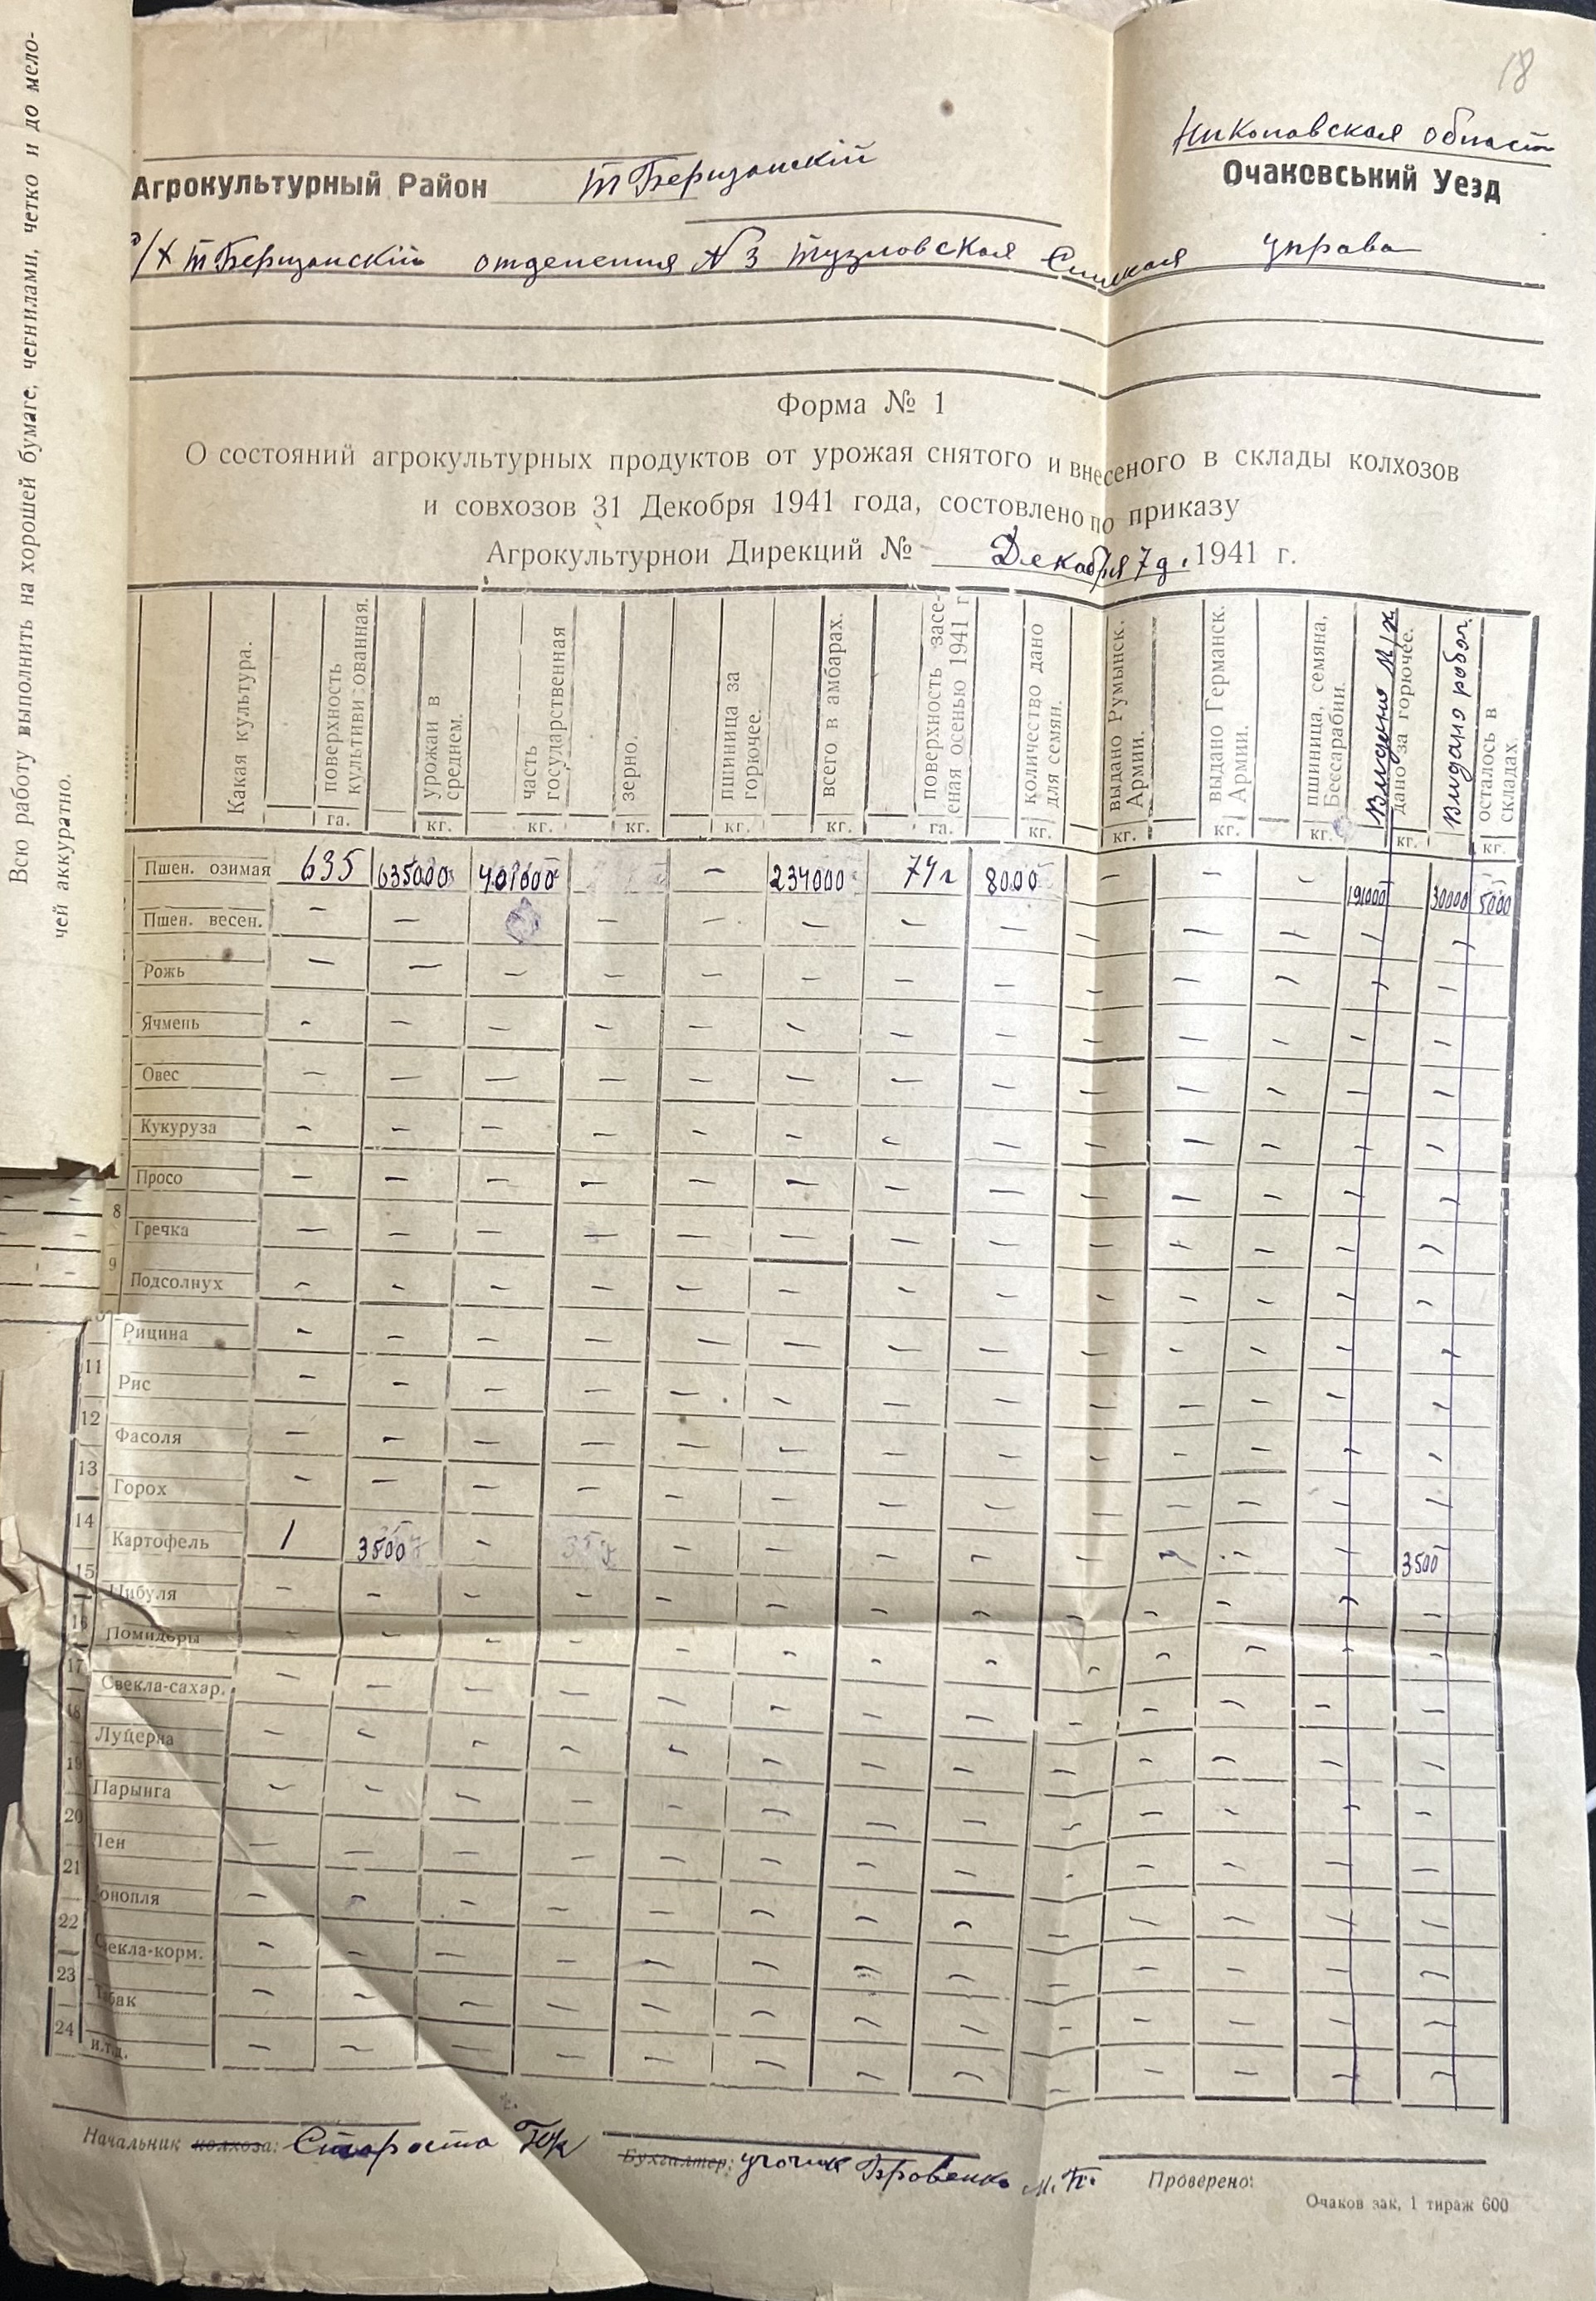 Всю работу выполнить на хорошей бумаге, чернилами, четко и до мело-
чей аккуратно.
18
Николаевская област
Агрокультурный Район Т Березанскій
Очаковський Уезд
с/х Т Березанскій отделения № 3 Тузловская Сельская управа
Форма № 1
О состояний агрокультурных продуктов от урожая снятого и внесеного в склады колхозов
и совхозов 31 Декобря 1941 года, состовлено по приказу
Агрокультурнои Дирекций № Декабря 7 д. 1941 г.
Какая культура.
поверхность культивированная. га.
урожаи в среднем. кг.
часть государственная кг.
зерно. кг.
пшиница за горючее. кг.
всего в амбарах. кг.
поверхность засе-еная осенью 1941 г га.
количество дано для семян. кг.
выдано Румынск. Армии. кг.
выдано Германск. Армии. кг.
пшиница, семяна, Бессарабии. кг.
Видано М/х
дано за горючее. кг.
Видано робоч.
осталось в складах. кг.
Пшен. озимая 635 635000 401000 – 234000 74 г 8000 – – – 191000 30000 5000
Пшен. весен. – – – – – – – – – – – – –
Рожь – – – – – – – – – – – – –
Ячмень – – – – – – – – – – – – –
Овес – – – – – – – – – – – – –
Кукуруза – – – – – – – – – – – – –
Просо – – – – – – – – – – – – –
8 Гречка – – – – – – – – – – – – –
9 Подсолнух – – – – – – – – – – – – –
Рицина – – – – – – – – – – – – –
11 Рис – – – – – – – – – – – – –
12 Фасоля – – – – – – – – – – – – –
13 Горох – – – – – – – – – – – – –
14 Картофель 1 3500 – – – – – – – – – 3500
15 Цибуля – – – – – – – – – – – – –
16 Помидоры – – – – – – – – – – – – –
17 Свекла-сахар. – – – – – – – – – – – – –
18 Луцерна – – – – – – – – – – – – –
19 Парынга – – – – – – – – – – – – –
20 Лен – – – – – – – – – – – – –
21 онопля – – – – – – – – – – – – –
22 Свекла-корм. – – – – – – – – – – – – –
23 Табак – – – – – – – – – – – – –
24 и.т.д. – – – – – – – – – – – – –
Начальник колхоза: Староста
Бухгалтер: учотчик Бровенко М. П.
Проверено:
Очаков зак, 1 тираж 600